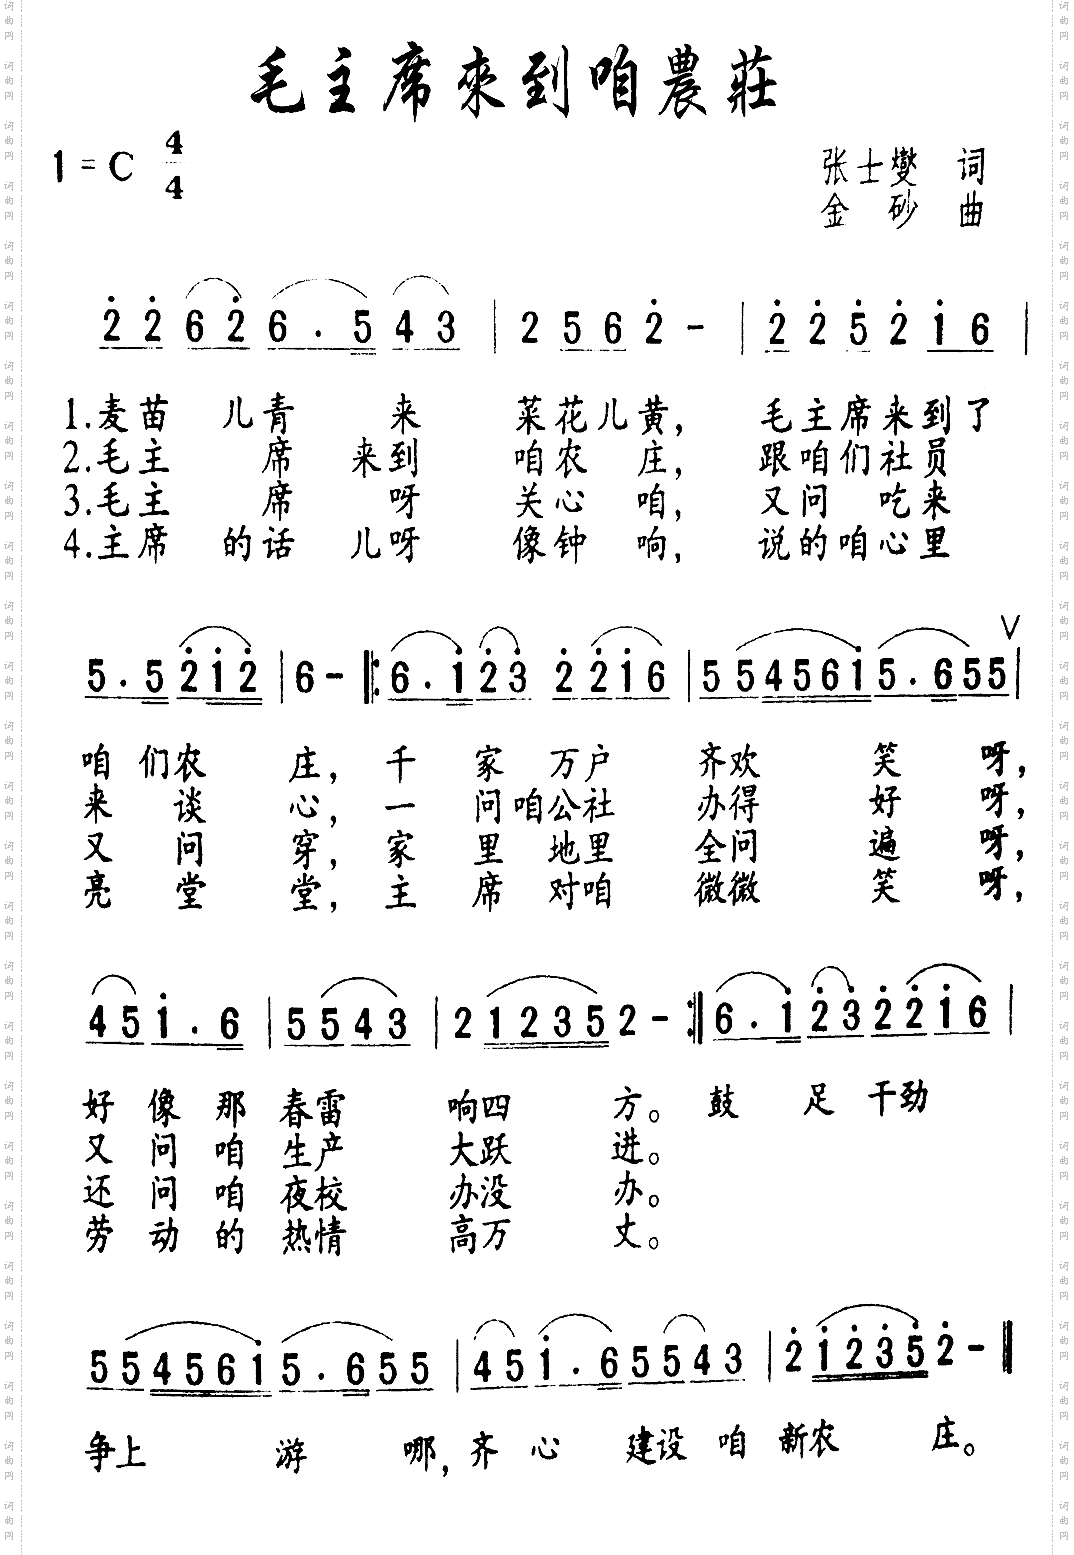 毛主席來到咱農莊
1=C 4/4
张士燮 词
金砂 曲
2 2 6 2 6 . 5 4 3 | 2 5 6 2 - | 2 2 5 2 1 6 |
1.麦苗儿青来菜花儿黄，毛主席来到了
2.毛主席来到咱农庄，跟咱们社员
3.毛主席呀关心咱，又问吃来
4.主席的话儿呀像钟响，说的咱心里
5 . 5 2 1 2 | 6 - |: 6 . 1 2 3 2 2 1 6 | 5 5 4 5 6 1 5 . 6 5 5 | V
咱们农庄，千家万户齐欢笑呀，
来谈心，一问咱公社办得好呀，
又问穿，家里地里全问遍呀，
亮堂堂，主席对咱微微笑呀，
4 5 1 . 6 | 5 5 4 3 | 2 1 2 3 5 2 - :| 6 . 1 2 3 2 2 1 6 |
好像那春雷响四方。鼓足干劲
又问咱生产大跃进。
还问咱夜校办没办。
劳动的热情高万丈。
5 5 4 5 6 1 5 . 6 5 5 | 4 5 1 . 6 5 5 4 3 | 2 1 2 3 5 2 - ‖
争上游哪，齐心建设咱新农庄。
词曲网